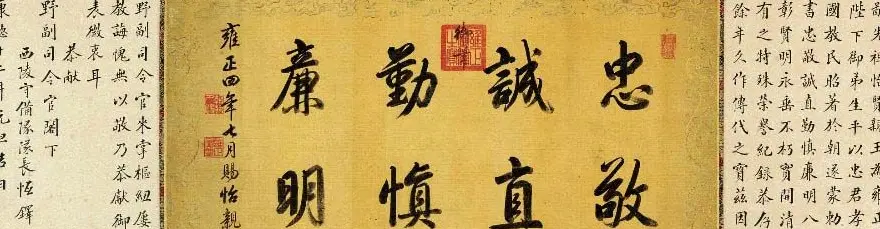 先祖怡賢親王為雍正
陛下御弟生平以忠君孝
國教民昭著於朝遂蒙勅
書忠敬誠直勤慎廉明八
彰賢明永垂不朽實間清
有之特殊榮譽紀録恭存
餘年久作傳代之寶茲因
忠敬
誠直
勤慎
廉明
雍正四年七月賜怡親
野副司令官来掌樞紐屢
教誨愧無以敬乃恭獻御
表微衷耳
恭献
野副司令官閣下
西陵守備隊隊長恆鐸